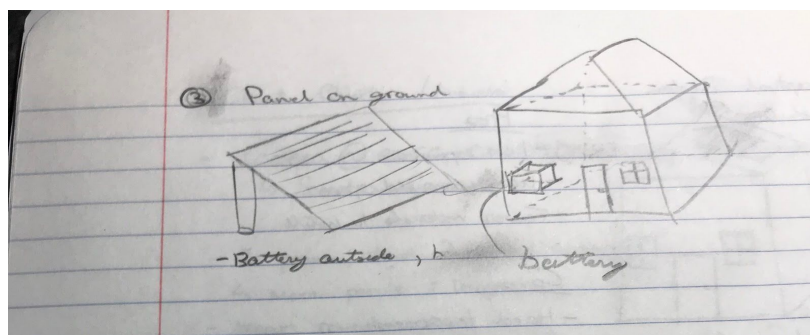 ③ Panel on ground
- Battery outside , h
battery